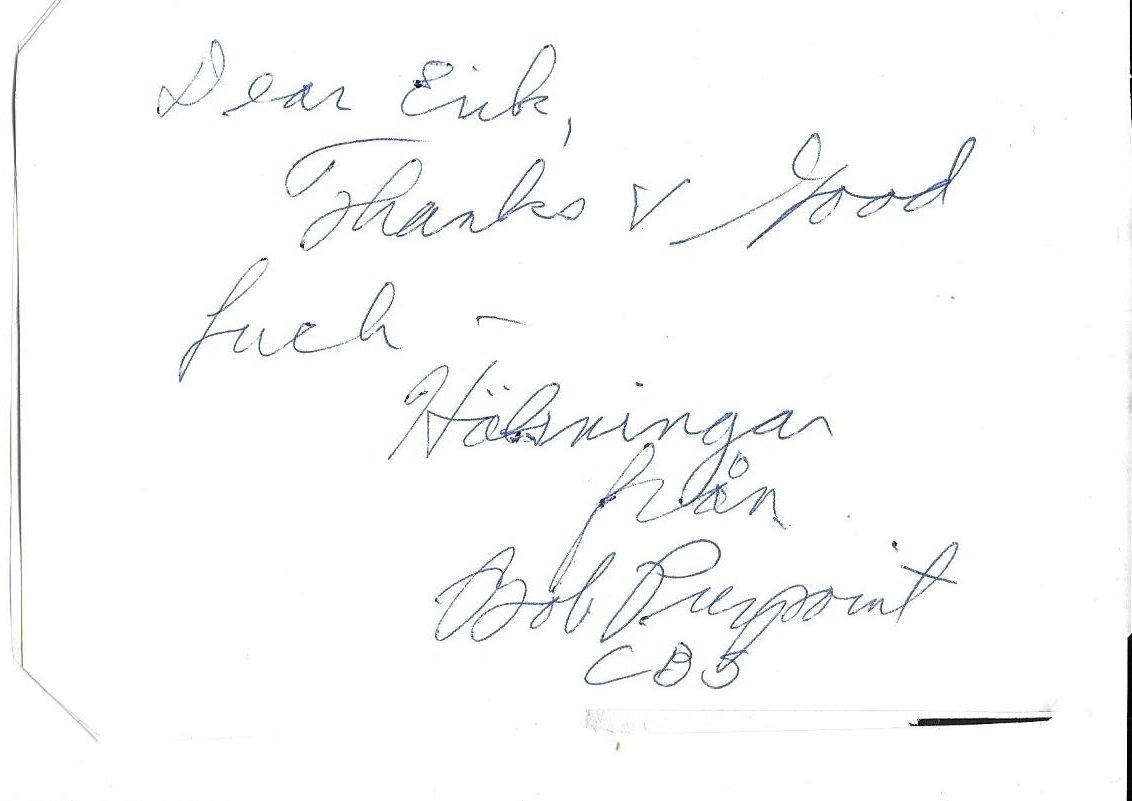 Dear Erik,
Thanks & Good
Luck –
Hälsningar
från
Bob Pierpoint
CBS